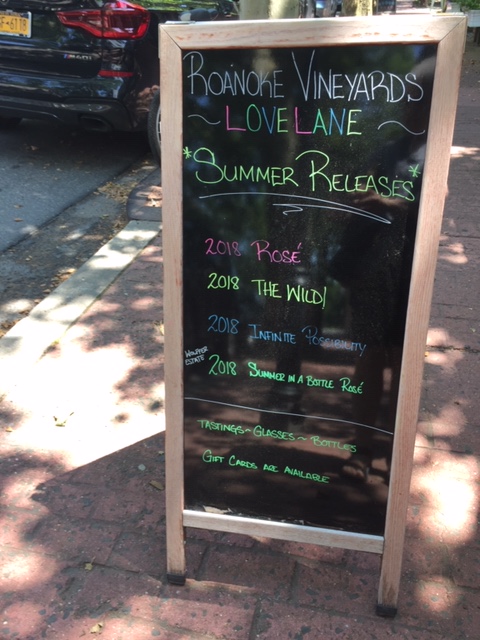 ROANOKE VINEYARDS
~ LOVE LANE ~
*SUMMER RELEASES*
2018 ROSÉ
2018 THE WILD!
2018 INFINITE POSSIBILITY
WÖLFFER ESTATE
2018 SUMMER IN A BOTTLE ROSÉ
TASTINGS ~ GLASSES ~ BOTTLES
GIFT CARDS ARE AVAILABLE
M40i